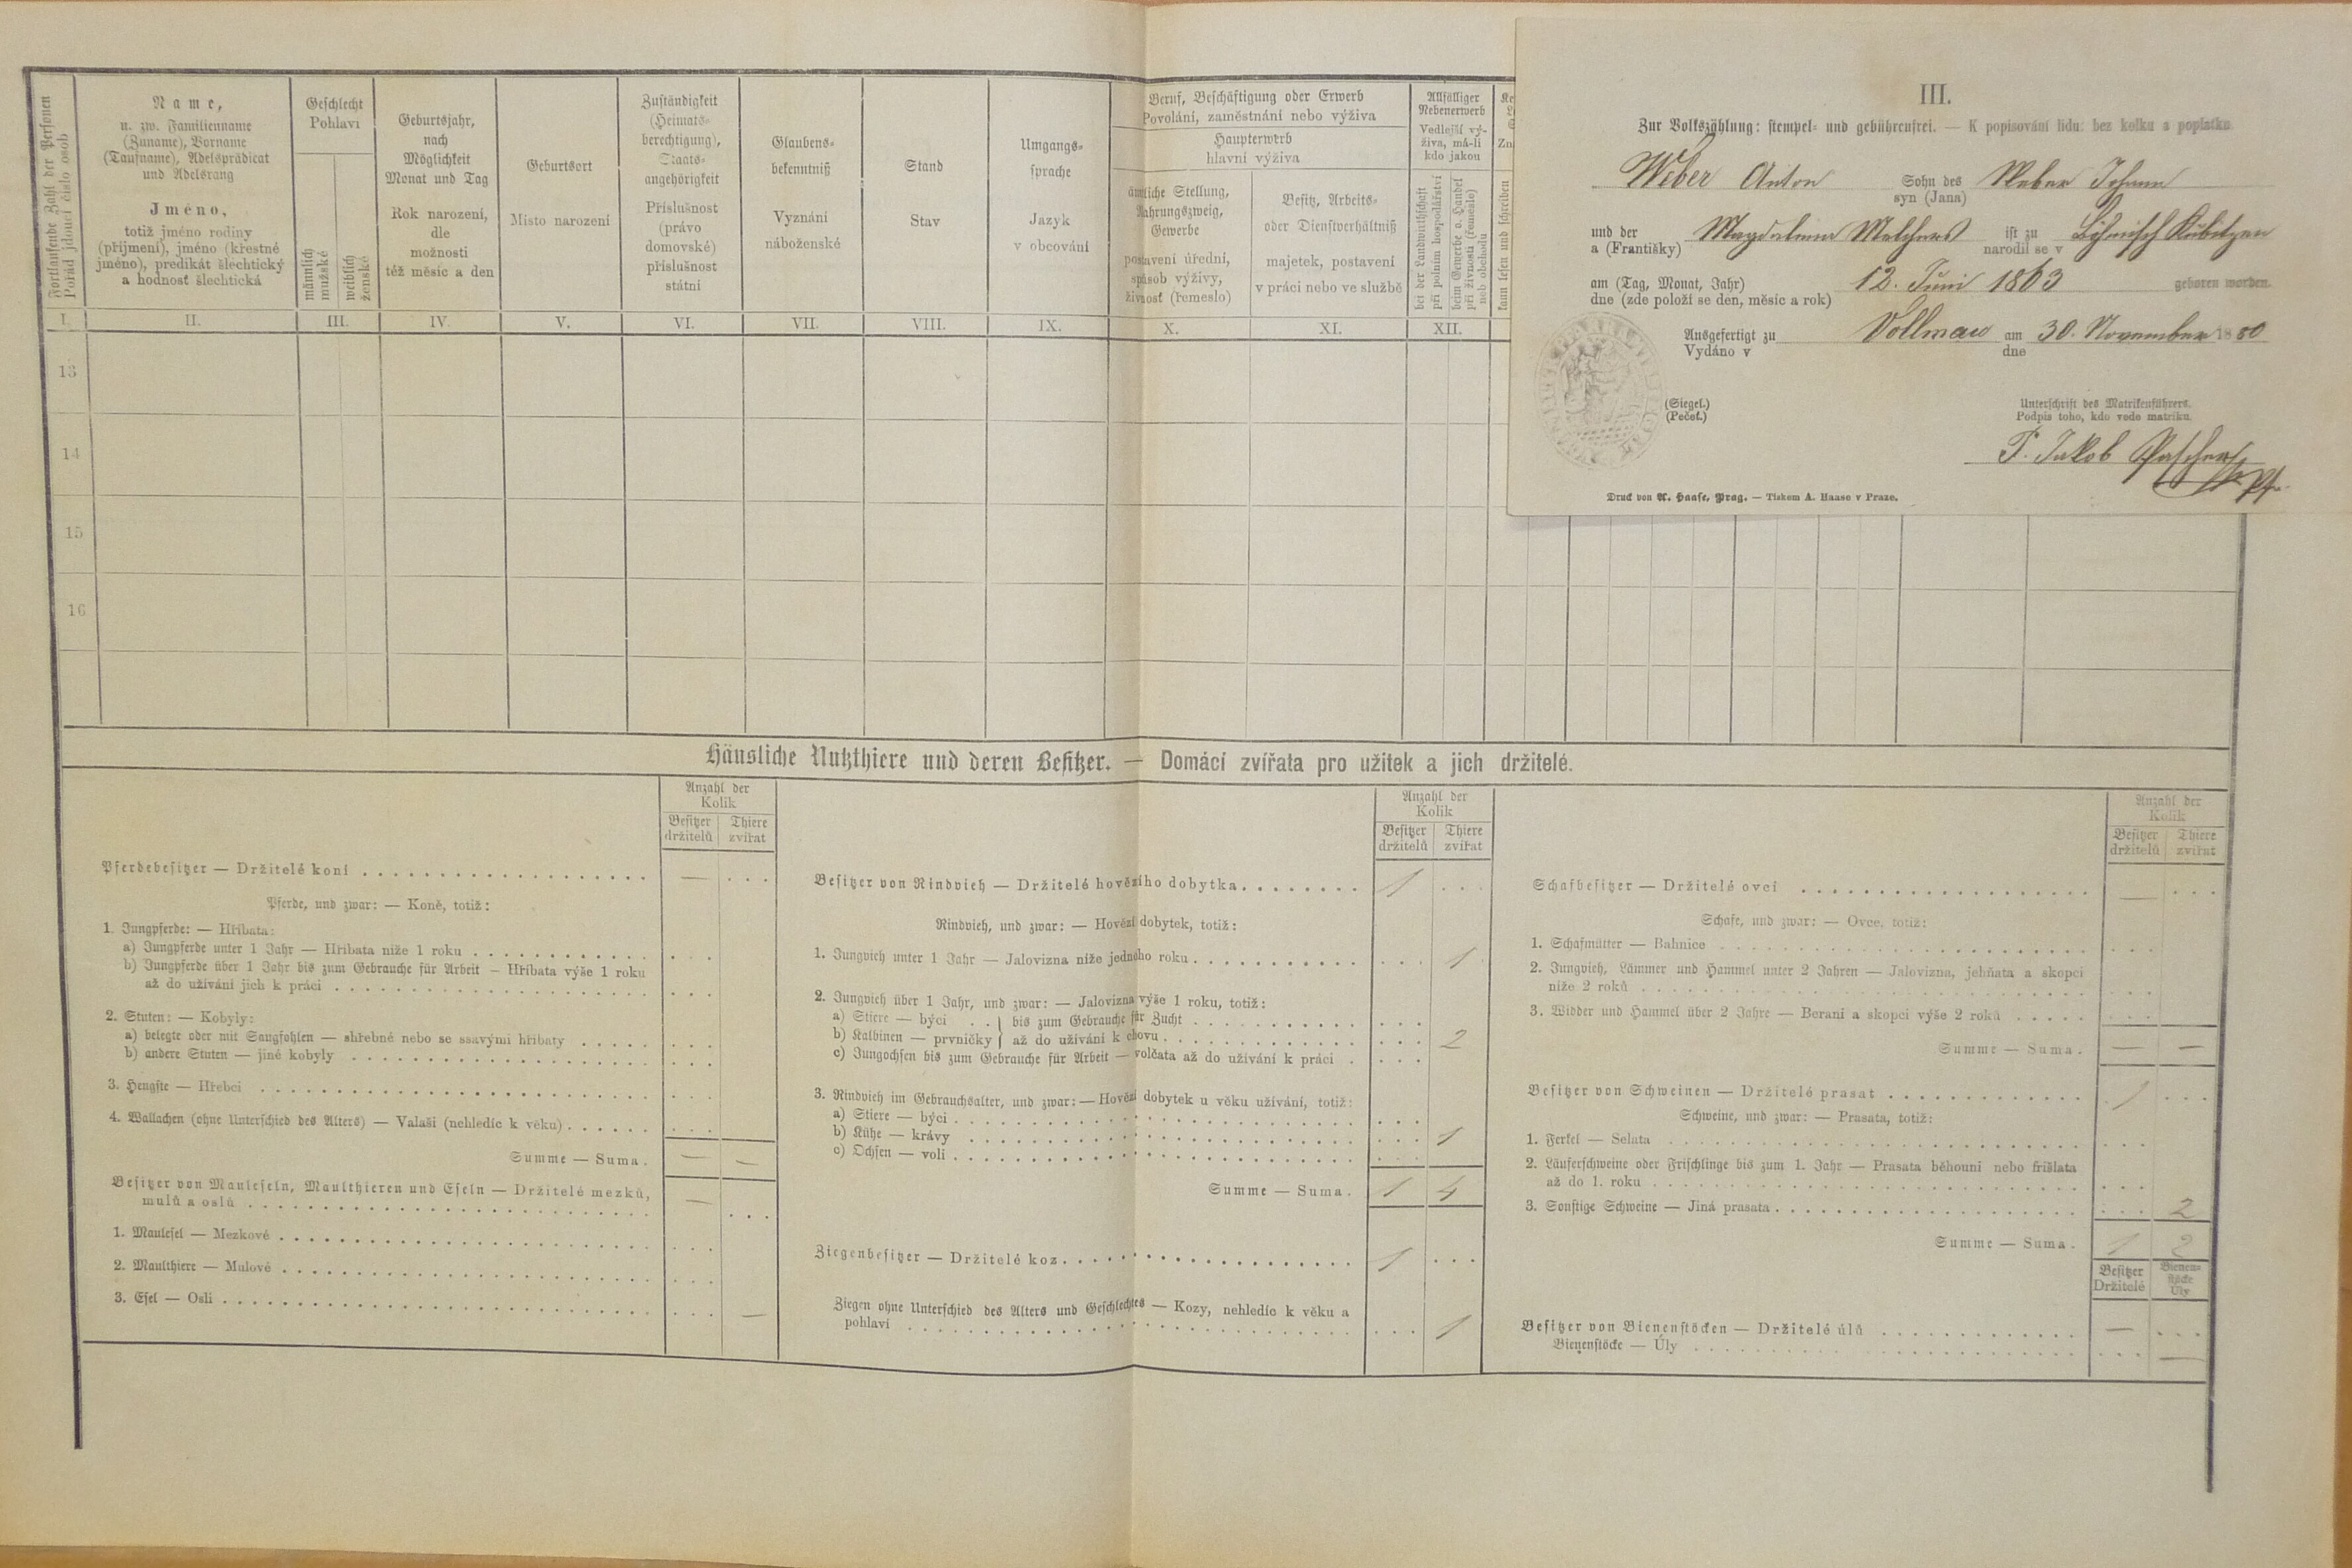 Fortlaufende Zahl der Personen
Pořád jdoucí číslo osob
Name,
u. zw. Familienname
(Zuname), Vorname
(Taufname), Adelsprädicat
und Adelsrang
Jméno,
totiž jméno rodiny
(příjmení), jméno (křestné
jméno), predikát šlechtický
a hodnosť šlechtická
Geschlecht
Pohlaví
männlich
mužské
weiblich
ženské
Geburtsjahr,
nach
Möglichkeit
Monat und Tag
Rok narození,
dle
možnosti
též měsíc a den
Geburtsort
Místo narození
Zuständigkeit
(Heimats-
berechtigung),
Staats-
angehörigkeit
Příslušnost
(právo
domovské)
příslušnost
státní
Glaubens-
bekenntniß
Vyznání
náboženské
Stand
Stav
Umgangs-
sprache
Jazyk
v obcování
Beruf, Beschäftigung oder Erwerb
Povolání, zaměstnání nebo výživa
Haupterwerb
hlavní výživa
ämtliche Stellung,
Nahrungszweig,
Gewerbe
postavení úřední,
spůsob výživy,
živnosť (řemeslo)
Besitz, Arbeits-
oder Dienstverhältniß
majetek, postavení
v práci nebo ve službě
Allfälliger
Nebenerwerb
Vedlejší vý-
živa, má-li
kdo jakou
bei der Landwirthschaft
při polním hospodářství
beim Gewerbe o. Handel
při živnosti (řemeslo)
neb obchodu
kann lesen und schreiben
I. II. III. IV. V. VI. VII. VIII. IX. X. XI. XII.
13
14
15
16
III.
Zur Volkszählung: stempel- und gebührenfrei. — K popisování lidu: bez kolku a poplatku.
Weber Anton Sohn des Weber Johann
syn (Jana)
und der Magdalena Melchers ist zu Böhmisch Kubitzen
a (Františky) narodil se v
am (Tag, Monat, Jahr) 12. Juni 1863 geboren worden.
dne (zde položí se den, měsíc a rok)
Ausgefertigt zu Vollmau am 30. November 1880
Vydáno v dne
(Siegel.)
(Pečeť.)
Unterschrift des Matrikenführers.
Podpis toho, kdo vede matriku.
P. Jakob
Druck von A. Haase, Prag. — Tiskem A. Haase v Praze.
Häusliche Nutzthiere und deren Besitzer. — Domácí zvířata pro užitek a jich držitelé.
Anzahl der
Kolik
Besitzer Thiere
držitelů zvířat
Pferdebesitzer — Držitelé koní — ...
Pferde, und zwar: — Koně, totiž:
1. Jungpferde: — Hříbata:
a) Jungpferde unter 1 Jahr — Hříbata níže 1 roku ...
b) Jungpferde über 1 Jahr bis zum Gebrauche für Arbeit — Hříbata výše 1 roku
až do užívání jich k práci ...
2. Stuten: — Kobyly:
a) belegte oder mit Saugfohlen — shřebné nebo se ssavými hříbaty ...
b) andere Stuten — jiné kobyly ...
3. Hengste — Hřebci ...
4. Wallachen (ohne Unterschied des Alters) — Valaši (nehledíc k věku) ...
Summe — Suma. — —
Besitzer von Mauleseln, Maulthieren und Eseln — Držitelé mezků,
mulů a oslů — ...
1. Maulesel — Mezkové ...
2. Maulthiere — Mulové ...
3. Esel — Osli ... —
Anzahl der
Kolik
Besitzer Thiere
držitelů zvířat
Besitzer von Rindvieh — Držitelé hovězího dobytka 1 ...
Rindvieh, und zwar: — Hovězí dobytek, totiž:
1. Jungvieh unter 1 Jahr — Jalovizna níže jednoho roku ... 1
2. Jungvieh über 1 Jahr, und zwar: — Jalovizna výše 1 roku, totiž:
a) Stiere — býci . . } bis zum Gebrauche für Zucht ...
b) Kalbinen — prvničky } až do užívání k chovu ... 2
c) Jungochsen bis zum Gebrauche für Arbeit — volčata až do užívání k práci ...
3. Rindvieh im Gebrauchsalter, und zwar: — Hovězí dobytek u věku užívání, totiž:
a) Stiere — býci ...
b) Kühe — krávy ... 1
c) Ochsen — voli ...
Summe — Suma. 1 4
Ziegenbesitzer — Držitelé koz 1 ...
Ziegen ohne Unterschied des Alters und Geschlechtes — Kozy, nehledíc k věku a
pohlaví ... 1
Anzahl der
Kolik
Besitzer Thiere
držitelů zvířat
Schafbesitzer — Držitelé ovcí — ...
Schafe, und zwar: — Ovce, totiž:
1. Schafmütter — Bahnice ...
2. Jungvieh, Lämmer und Hammel unter 2 Jahren — Jalovizna, jehňata a skopci
níže 2 roků ...
3. Widder und Hammel über 2 Jahre — Berani a skopci výše 2 roků ...
Summe — Suma. — —
Besitzer von Schweinen — Držitelé prasat 1 ...
Schweine, und zwar: — Prasata, totiž:
1. Ferkel — Selata ...
2. Läuferschweine oder Frischlinge bis zum 1. Jahr — Prasata běhouni nebo frišlata
až do 1. roku ...
3. Sonstige Schweine — Jiná prasata ... 2
Summe — Suma. 1 2
Besitzer Bienen-
Držitelé stöcke
Úly
Besitzer von Bienenstöcken — Držitelé úlů — ...
Bienenstöcke — Úly ... —